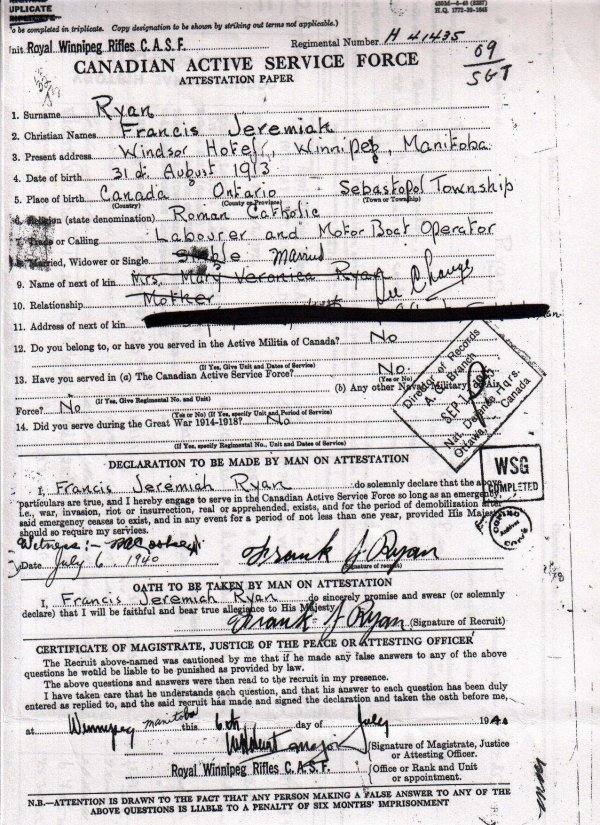 UPLICATE
To be completed in triplicate. Copy designation to be shown by striking out terms not applicable.)
H.Q. 1772-39-1645
Unit Royal Winnipeg Rifles C.A.S.F. Regimental Number H 41435
69
SGT
CANADIAN ACTIVE SERVICE FORCE
ATTESTATION PAPER
1. Surname Ryan
2. Christian Names Francis Jeremiah
3. Present address Windsor Hotel, Winnipeg, Manitoba
4. Date of birth 31st August 1913
5. Place of birth Canada Ontario Sebastopol Township
(Country) (County or Province) (Town or Township)
6. Religion (state denomination) Roman Catholic
7. Trade or Calling Labourer and Motor Boat Operator
8. Married, Widower or Single Single Married
9. Name of next of kin Mrs. Mary Veronica Ryan
See Change
10. Relationship Mother
11. Address of next of kin
12. Do you belong to, or have you served in the Active Militia of Canada? No
(If Yes, Give Unit and Dates of Service)
13. Have you served in (a) The Canadian Active Service Force? No
(Yes or No)
(If Yes, Give Regimental No. and Unit)
(b) Any other Naval Military Air
Force? No
(Yes or No) (If Yes, specify Unit and Period of Service)
14. Did you serve during the Great War 1914-1918? No
(If Yes, specify Regimental No., Unit and Dates of Service)
Director of Records
A. G. Branch
SEP 1
Nat. Defence Hdqrs.
Ottawa, Canada
WSG
COMPLETED
DECLARATION TO BE MADE BY MAN ON ATTESTATION
I, Francis Jeremiah Ryan do solemnly declare that the above
particulars are true, and I hereby engage to serve in the Canadian Active Service Force so long as an emergency,
i.e., war, invasion, riot or insurrection, real or apprehended, exists, and for the period of demobilization after
said emergency ceases to exist, and in any event for a period of not less than one year, provided His Majesty
should so require my services.
Witness:-
Date July 6 1940
Frank J Ryan
(Signature of recruit)
OATH TO BE TAKEN BY MAN ON ATTESTATION
I, Francis Jeremiah Ryan do sincerely promise and swear (or solemnly
declare) that I will be faithful and bear true allegiance to His Majesty.
Frank J Ryan (Signature of Recruit)
CERTIFICATE OF MAGISTRATE, JUSTICE OF THE PEACE OR ATTESTING OFFICER
The Recruit above-named was cautioned by me that if he made any false answers to any of the above
questions he would be liable to be punished as provided by law.
The above questions and answers were then read to the recruit in my presence.
I have taken care that he understands each question, and that his answer to each question has been duly
entered as replied to, and the said recruit has made and signed the declaration and taken the oath before me,
at Winnipeg manitoba this 6th day of July 1940
major
(Signature of Magistrate, Justice
or Attesting Officer.
Royal Winnipeg Rifles C.A.S.F. (Office or Rank and Unit
or appointment.
N.B.—ATTENTION IS DRAWN TO THE FACT THAT ANY PERSON MAKING A FALSE ANSWER TO ANY OF THE
ABOVE QUESTIONS IS LIABLE TO A PENALTY OF SIX MONTHS' IMPRISONMENT